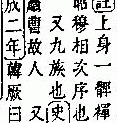 註上身一髀褌
昭穆相次序也
又九族也史
蕭曹故人 又
成二年韓厥曰